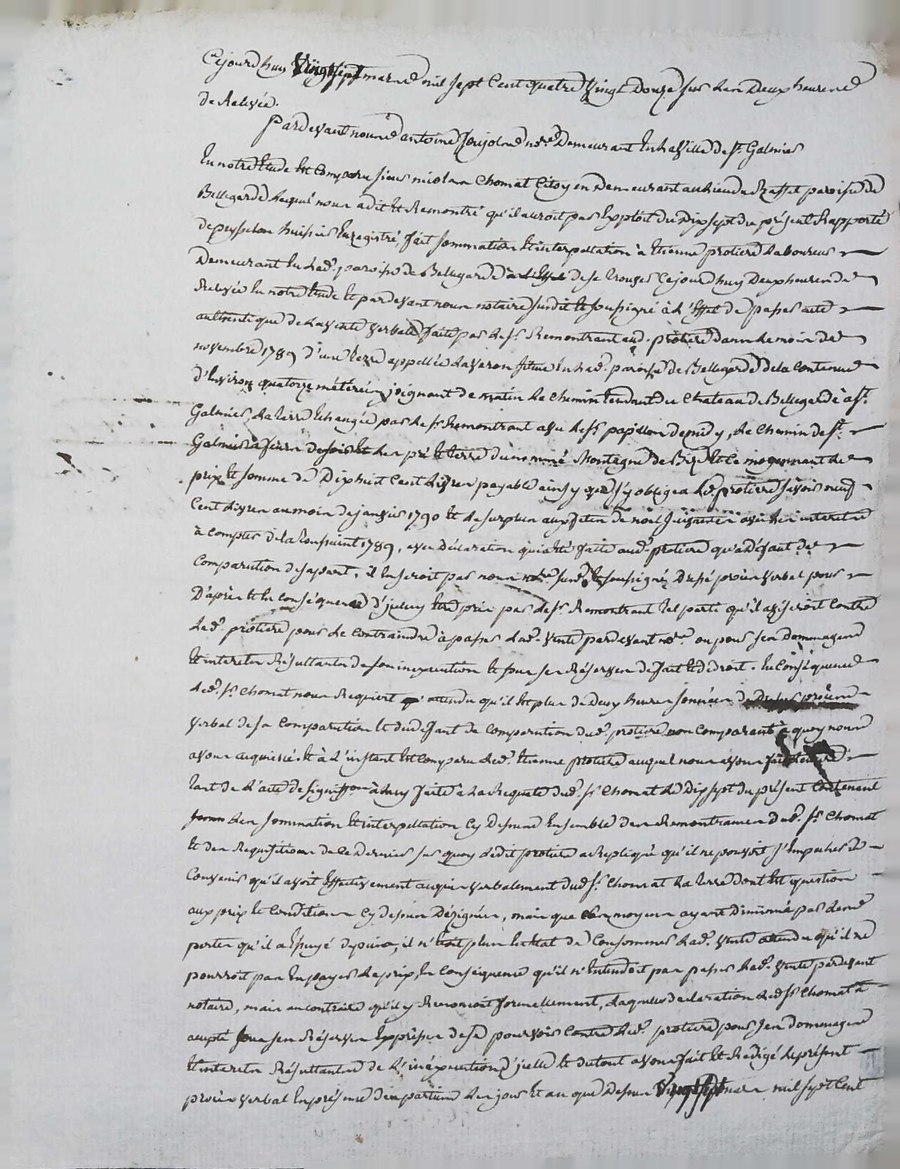 Cejourdhuy Vingtsept mars mil sept Cent quatre Vingt Douze sur les Deux heures
de Relevée.
Pardevant nous antoine no.re Demeurant En la Ville de st. Galmier
En notre Etude Est Comparu sieur nicolas Chomat Citoyen Demeurant au lieu du paroisse de
Bellegarde Lequel nous a dit Et Remontré qu'il auroit par Exploit du Dix sept du présent Rapporté
de peysselon huissier Enregistré fait sommation Et interpellation à Etienne protiere Laboureur
Demeurant En lad. paroisse de Bellegarde de se trouver Cejourdhuy Deux heures de
Relevée En notre Etude Et pardevant nous notaire susdit Et soussigné à L'Effet de passer acte
authentique de la vente verballe faite par led. sr. Remontrant aud. protiere dans le mois de
novembre 1789 d'une terre appellée Laveron située En lad. paroisse de Bellegarde de la Contenue
d'Environ quatorze métérées joignant de matin le Chemin tendant du Chateau de Bellegarde à st.
Galmier, la terre Echangée par led. sr. Remontrant au sr. papillon de midy, le Chemin de st.
Galmier à de soir Et les pré Et terre du nommé Montagne de Bize Et Ce moyennant le
prix Et somme de Dix huit Cent Livres payable ainsy que s'y obligea led. protiere savoir neuf
Cent Livres au mois de janvier 1790 Et le surplus aux fêtes de noël suivantes avec les interets
à Compter de la Toussaint 1789, avec Déclaration qui a Eté faite aud. protiere qu'a Défaut de
Comparution de sa part, il En seroit par nous no.re susd. Et soussigné Dressé procès verbal pour
D'après Et En Conséquence d'iceluy Etre pris par led. sr. Remontrant tel parti qu'il aviseroit Contre
led. protiere pour le Contraindre à passer lad. Vente pardevant no.re ou pour ses Dommages
Et interets Résultants de son inexecution Et sous ses Réserves de fait Et de droit. En Conséquence
led. sr. Chomat nous Requiert attendu qu'il Est plus de deux heures sonnées de procès
verbal de sa Comparution Et du defaut de Comparution dud. protiere non Comparant à quoy nous
avons acquiescé. Et à L'instant Est Comparu led. Etienne protiere auquel nous avons fait lecture
tant de L'acte de signiff.on à luy faite à la Requete dud. sr. Chomat le Dix sept du présent Contenant
les sommation Et interpellation Cy Dessus Ensemble des Remontrances dud. sr. Chomat
Et des Requisitions de Ce Dernier sur quoy ledit protiere a Repliqué qu'il ne pouvoit s'Empecher de
Convenir qu'il avoit Effectivement acquis verbalement dud. sr. Chomat la terre Dont Est question
aux prix Et Conditions Cy dessus Désignées, mais que ses moyens ayant Diminué par les
pertes qu'il a Essuyé depuis, il n'Etoit plus En Etat de Consommer lad. Vente attendu qu'il ne
pourroit pas En payer le prix, En Conséquence qu'il n'Entendoit pas passer lad. Vente pardevant
notaire, mais au contraire qu'il y Renoncoit formellement, Laquelle declaration led. sr. Chomat a
accepté sous ses Réserves Expresses de se pourvoir Contre led. protiere pour ses dommages
Et interets Résultants de L'inexécution d'icelle Et de tout avons fait Et Rédigé le présent
procès verbal En présence des parties les jour Et an que Dessus Vingt sept mars mil sept Cent